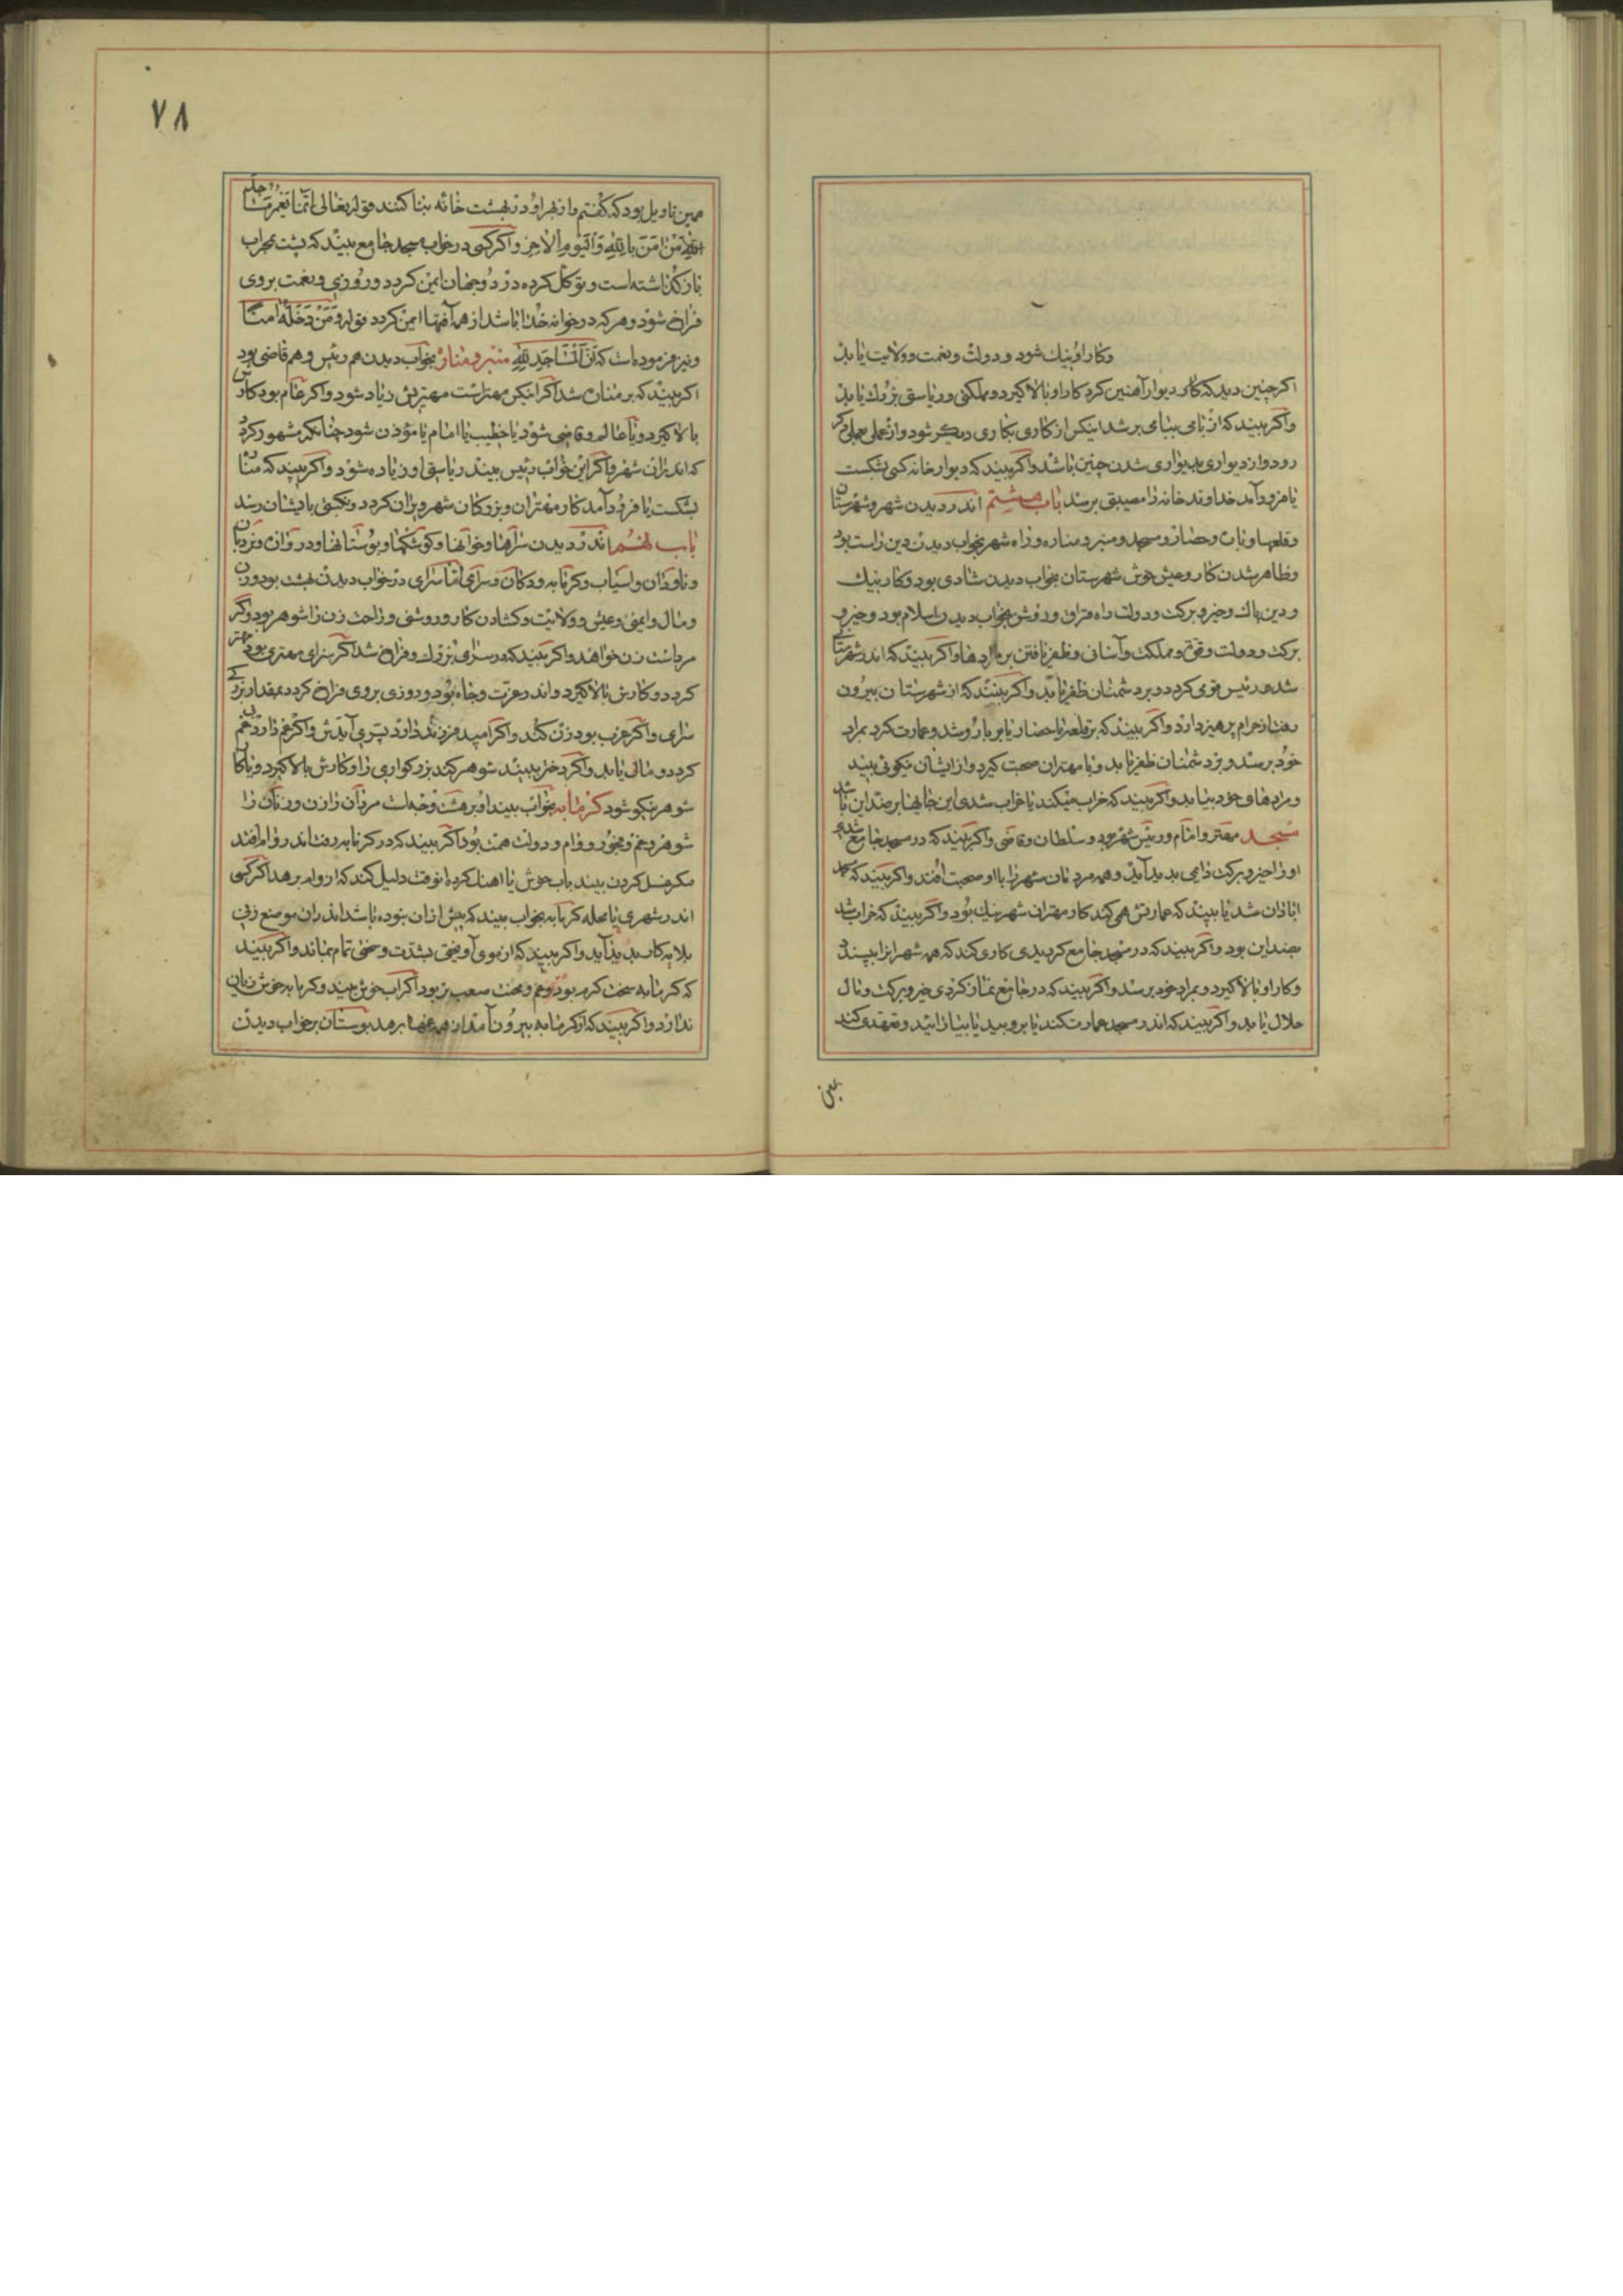 وکار او نیك شود و دولت و نعمت و ولایت یابد
اکر چنین دید که کار دیوار آهنین کرد کار او بالا کیرد و مملکتی و ریاستی بزرك یابد
واکر بیند که از بامی ببامی بر شد اینکس از کاری بکاری دیکر شود و از عملی بعملی
رود و از دیواری بدیواری شدن چنین باشد واکر بیند که دیوار خانه کسی بشکست
یا فرود آمد خداوند خانه را مصیبتی برسد باب هشتم اندر دیدن شهر و شهرستان
و قلعها و حصار و مسجد و منبر و مناره و راه شهر بخواب دیدن دین راست بود
و ظاهر شدن کار و عیش خوش شهرستان بخواب دیدن شادی بود و کار نیك
و دین پاك و خیر و برکت و دولت بخواب دیدن اسلام بود و خیر و
برکت و دولت و قوت و مملکت و آسانی و ظفر یافتن بر مرادها واکر بیند که اندر شهرستانی
شد و رئیس قوی کردد و بر دشمنان ظفر یابد واکر بیند که از شهرستان بیرون
رفت از حرام پرهیز دارد واکر بیند که بر قلعه یا حصار یا بر بارو شد و عمارت کرد بمراد
خود برسد و بر دشمنان ظفر یابد و با مهتران صحبت کیرد و از ایشان نیکوئی بیند
و مرادهای خود بیابد واکر بیند که خراب میکند یا خراب شدی این جایها بر ضد این باشد
مسجد مهتر و امام و رئیس شهر بود و سلطان و قاضی واکر بیند که در مسجد جامع شدی
او را خیر و برکت دایمی پدید آید و همه مردمان شهر را با او صحبت افتد واکر بیند که
آبادان شد یا بیند که عمارتش همی کند کار مهتران شهر نیك بود واکر بیند که خراب شد
بضد این بود واکر بیند که در مسجد جامع کردیدی کاری کند که همه شهر آنرا بپسندد
وکار او بالا کیرد و بمراد خود برسد واکر بیند که در جامع نماز کردی خیر و برکت و مال
حلال یابد واکر بیند که اندر مسجد عمارت کند یا بروبد یا بیاراید و تعهدی کند
۷۸
همین تاویل بود که کفتیم و از بهر او در بهشت خانه بنا کنند قوله تعالی انما یعمر مساجد
الله من امن بالله والیوم الاخر واکر کسی در خواب مسجد جامع بیند که پشت بمحراب
باز کذاشته است و توکل کرده در دو جهان ایمن کردد و روزی و نعمت بر وی
فراخ شود و هر که در خانه خدا باشد از همه آفتها ایمن کردد قوله و من دخله امنا
و نیز فرموده است که ان المساجد لله منبر و منار بخواب دیدن هم رئیس و هم قاضی بود
اکر بیند که بر منار شد اکر اینکس مهتر است مهتریش زیاد شود واکر عام بود کارش
بالا کیرد و یا عالم و قاضی شود یا خطیب یا امام یا مؤذن شود چنانکه مشهور کردد
که اندر آن شهر واکر این خواب رئیس بیند ریاستی او زیاده شود واکر بیند که منار
بشکست یا فرود آمد کار مهتران و بزرکان شهر ویران کردد و نکبتی بدیشان رسد
باب نهم اندر دیدن سراها و خوانها و کوشکها و بوستانها و در و آن و نردبان
و ناودان و اسیاب و کرمابه و دکان و سرای اما سرای در خواب دیدن بهشت بود و زن
و مال و ایمنی و عیش و ولایت و کشادن کار و روشنی و راحت زن را شوهر بود واکر
مرد است زن خواهد واکر بیند که در سرای بزرك و فراخ شد اکر سرای مهتری بود مهتر
کردد و کارش بالا کیرد و اندر عزت و جاه بود و روزی بر وی فراخ کردد بمقدار بزرکی
سرای واکر عزب بود زن کند واکر امید فرزند دارد پسری آیدش واکر غم دارد بی غم
کردد و مالی یابد واکر دختر بیند شوهر کند بزرکواری را و کارش بالا کیرد و با کار
شوهر نیکو شود کرمابه بخواب بیند او بر هشت وجه است مردان را زن و زنان را
شوهر و غم و بخور و وام و دولت همت بود اکر بیند که در کرمابه رفت اندر وام افتد
مکر غسل کردن بیند باب خوش یا آهنك کرده آنوقت دلیل کند که از وام برهد اکر کسی
اندر شهری یا محله کرمابه بخواب بیند که پیش از آن نبوده باشد اندر آن موضع زنی
بلایه کار پدید آید واکر بیند که از موی آویختی بشدت و سختی تمام بماند واکر بیند
که کرمابه سخت کرم بود غم و محنت صعب تر بود اکر آب خوش بیند و کرمابه خوش زیان
ندارد واکر بیند که از کرمابه بیرون آمد از همه غمها برهد بوستان بر خواب دیدن